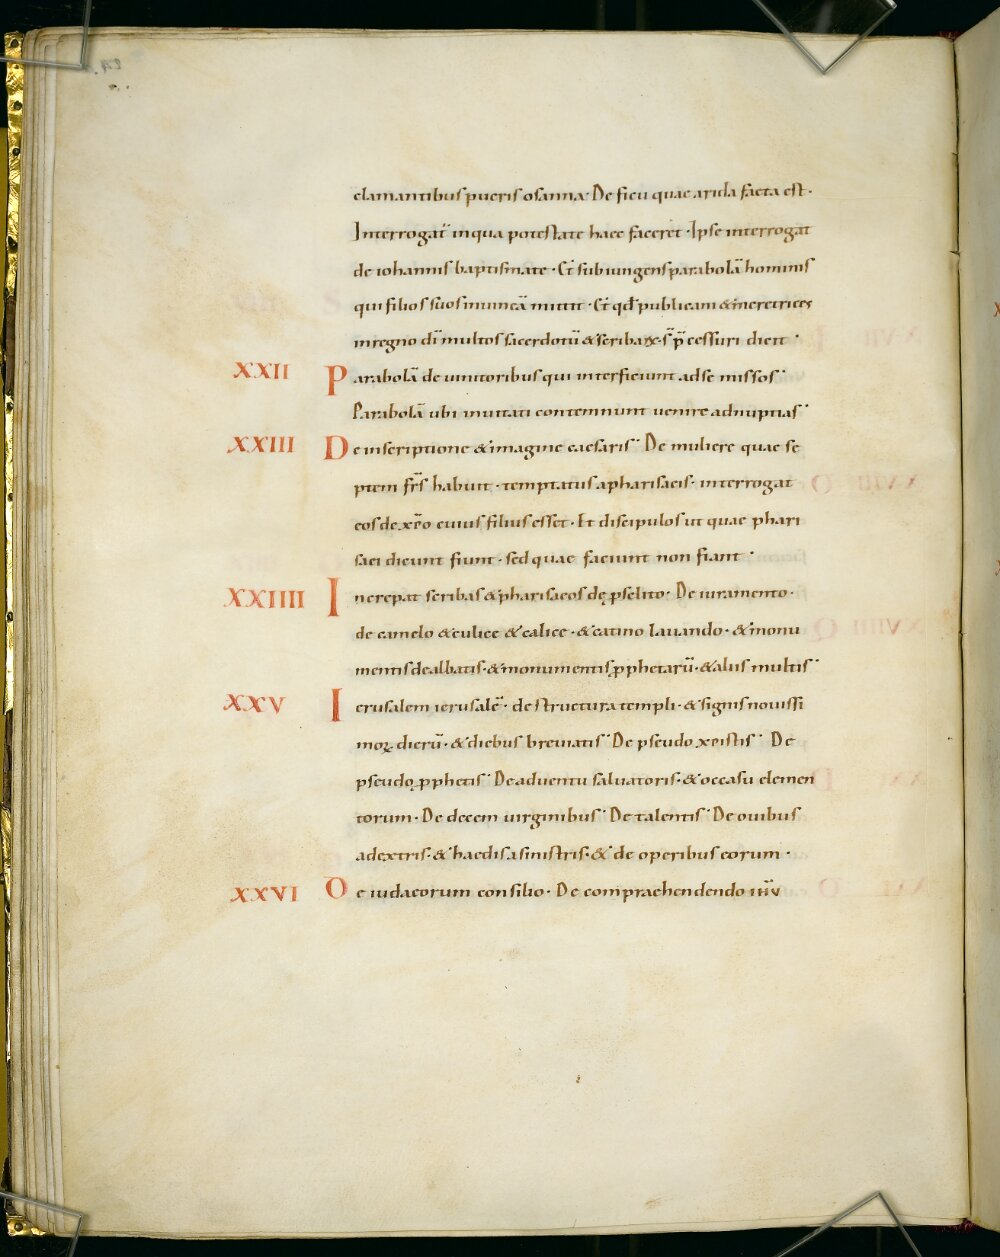 clamantibus pueris osanna· De ficu quae arida facta est·
Interrogat̄ in qua potestate haec faceret· Ipse interrogat
de iohannis baptismate· Et subiungens parabolā hominis
qui filios suos in uineā mittit· Et qđ publicani & meretrices
in regno dī multos sacerdotū & scribarꝝ· s̄ p̄cessuri dicit·
XXII Parabolā de uinitoribus qui interficiunt ad se missos·
Parabolā ubi inuitati contemnunt uenire ad nuptias·
XXIII De inscriptione & imagine caesaris· De muliere quae se
ptem fr̄s habuit· temptatus a pharisaeis· interrogat
eos de xp̄o cuius filius esset· Et discipulos ut quae phari
saei dicunt fiunt· sed quae faciunt non fiant·
XXIIII Increpat scribas & pharisaeos de ꝓselito· De iuramento·
de camelo & culice & calice· & catino lauando· & monu
mentis dealbatis· & monumentis ꝓphetarū· & aliis multis·
XXV Ierusalem ierusalē· de structura templi· & signis nouissi
moꝝ dierū· & diebus breuiatis· De pseudo xpistis· De
pseudo ꝓphetis· De aduentu saluatoris· & occasu elemen
torum· De decem uirginibus· De talentis· De ouibus
a dextris· & haedis a sinistris· & de operibus eorum·
XXVI De iudaeorum consilio· De comprachendendo ih̄u